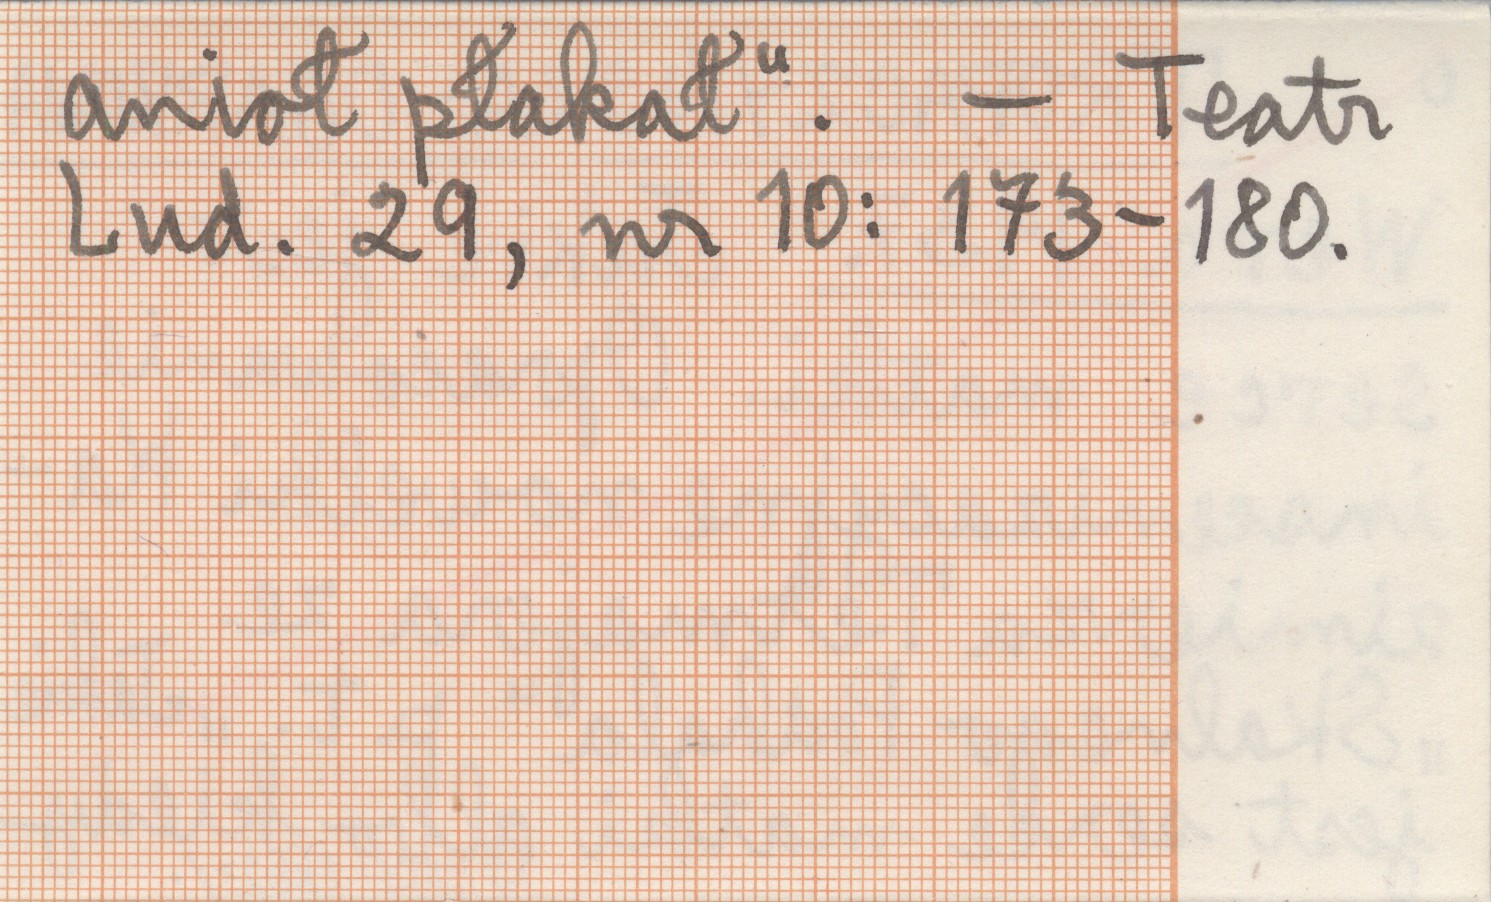 anioł płakał". — Teatr
Lud. 29, nr 10: 173-180.